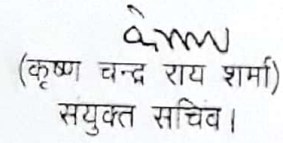 (कृष्ण चन्द्र राय शर्मा)
सयुक्त सचिव।